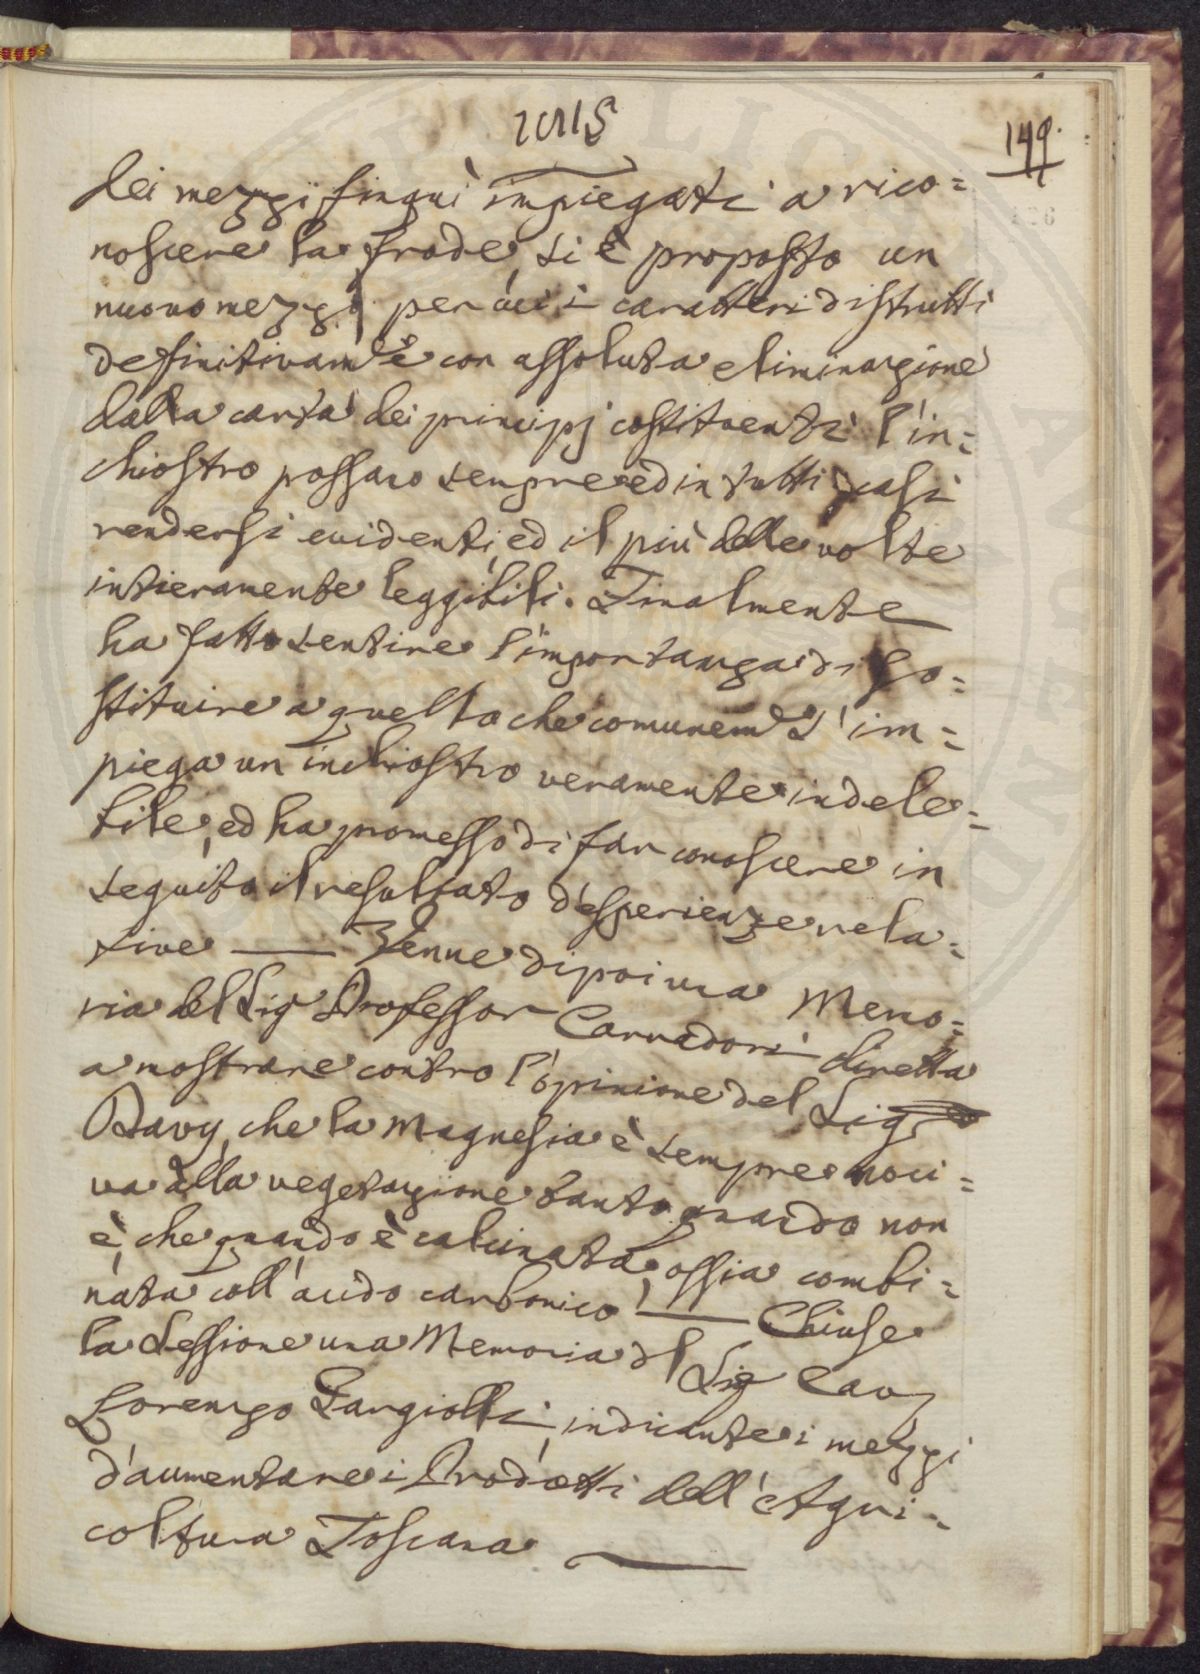 149.
dei mezzi finquì impiegati a rico=
noscere la frode, si è proposto un
nuovo mezzo per cui i caratteri distrutti
definitivam.e e con assoluta eliminazione
dalla carta dei principj costituenti l'in=
chiostro possano sempre ed in tutti i casi
rendersi evidenti, ed il più delle volte
intieramente leggibili. Finalmente
ha fatto sentire l'importanza di so=
stituire a quello che comunem.e s'im=
piega un inchiostro veramente indele=
bile, ed ha promesso di far conoscere in
seguito il resultato d'esperienze rela=
tive — Venne dipoi una Memo=
ria del Sig.r Professor Carradori diretta
a mostrare contro l'opinione del Sig.r
Davy, che la Magnesia è sempre noci=
va alla vegetazione tanto quando non
è, che quando è calcinata, ossia combi=
nata coll'acido carbonico — Chiuse
la Sessione una Memoria del Sig.e Cav.
Lorenzo Pargiolli indicante i mezzi
d'aumentare i Prodotti dell'Agri=
coltura Toscana —